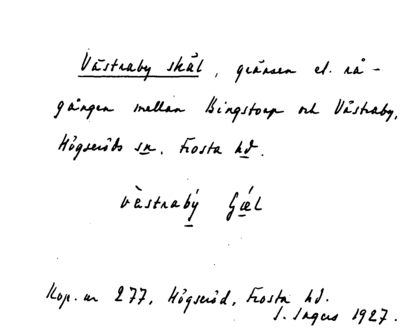 Västraby skäl, gränsen el. rå-
gången mellan Bingstorp och Västraby,
Högseröds sn. Frosta hd.
västraby
Kop. nr 277, Högseröd, Frosta hd.
I. Ingers 1927.